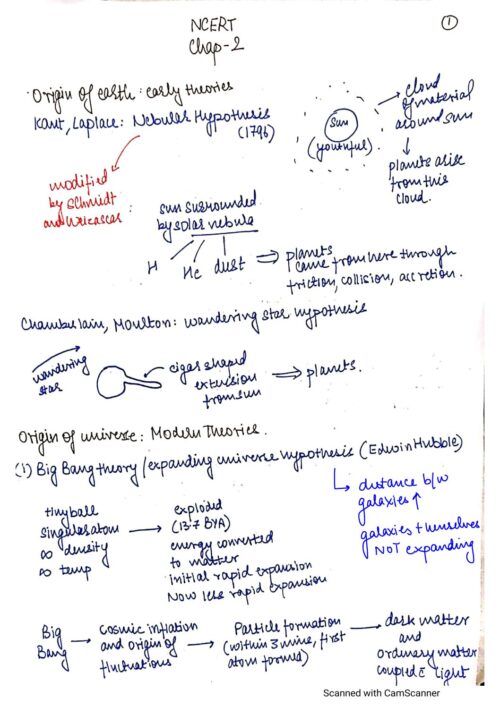 NCERT
Chap-2
①
Origin of earth: early theories
Kant, Laplace: Nebular Hypothesis
(1796)
Sun
(youthful)
cloud
of material
around sun
planets arise
from this
cloud.
modified
by Schmidt
and
sun surrounded
by solar nebula
H
He
dust ⇒ planets
came from here through
friction, collision, accretion.
Chamberlain, Moulton: wandering star hypothesis
wandering
star
cigar shaped
extension
from sun
⇒ planets.
Origin of universe: Modern Theories.
(1) Big Bang theory / expanding universe hypothesis (Edwin Hubble)
↳ distance b/w
galaxies ↑
galaxies themselves
NOT expanding
tiny ball
singular atom
∞ density
∞ temp
→ exploded
(13.7 BYA)
energy converted
to matter
initial rapid expansion
Now less rapid expansion
Big
Bang
→ cosmic inflation
and origin of
fluctuations
→ Particle formation
(within 3 mins, first
atom formed)
→ dark matter
and
ordinary matter
coupled c̄ light
Scanned with CamScanner